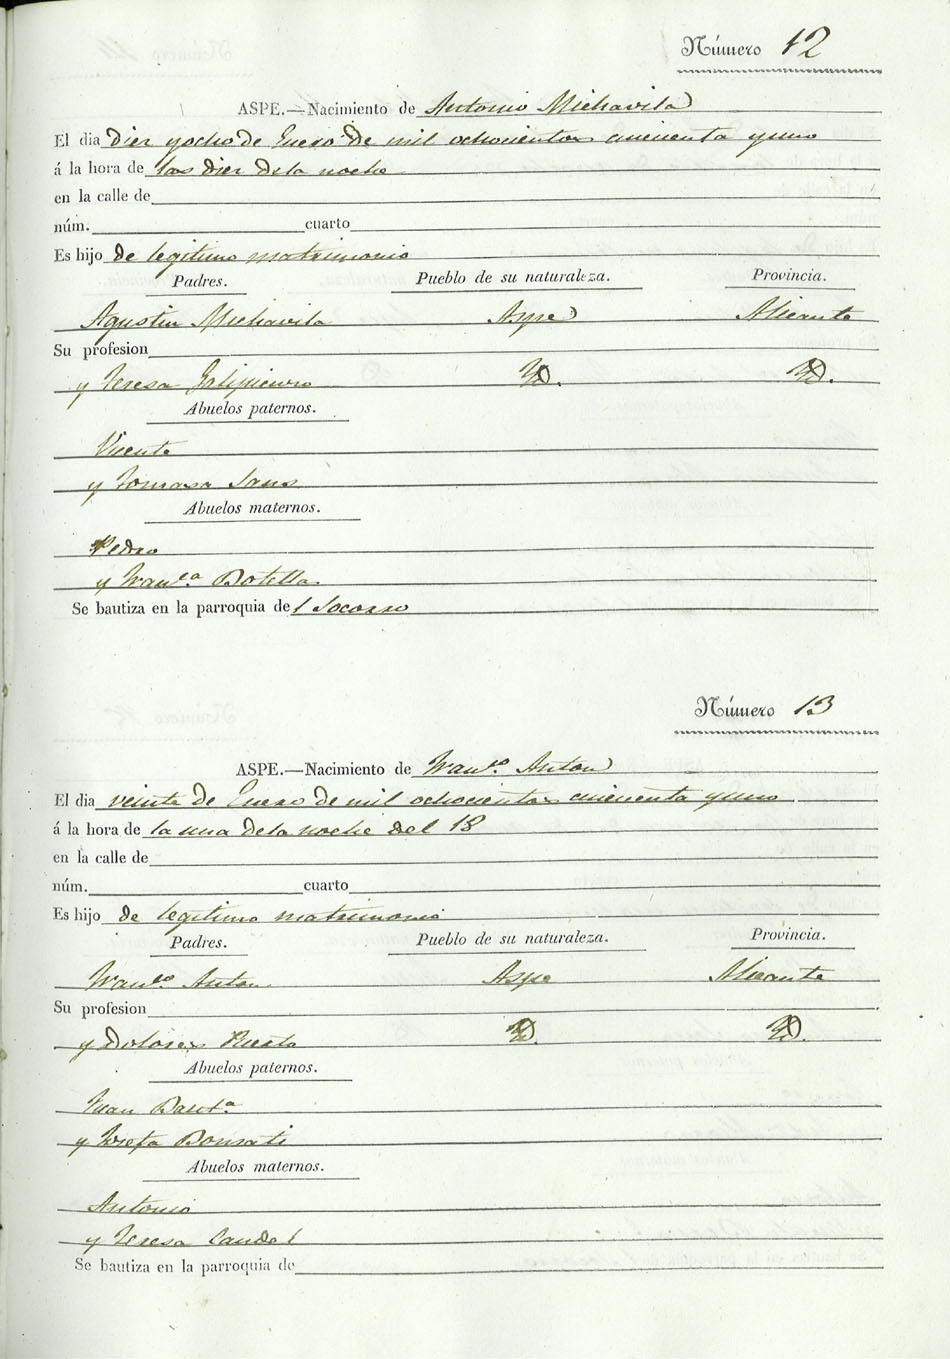 Número 12
ASPE.—Nacimiento de Antonio Michavila
El dia Diez y ocho de Enero de mil ochocientos cincuenta y uno
á la hora de las diez de la noche
en la calle de
núm. cuarto
Es hijo de legitimo matrimonio
Padres. Pueblo de su naturaleza. Provincia.
Agustin Michavila Aspe Alicante
Su profesion
y Teresa Yd. Yd.
Abuelos paternos.
Vicente
y Tomasa Sans
Abuelos maternos.
Pedro
y Franca Botella
Se bautiza en la parroquia del Socorro
Número 13
ASPE.—Nacimiento de Franco Anton
El dia veinte de Enero de mil ochocientos cincuenta y uno
á la hora de la una de la noche del 18
en la calle de
núm. cuarto
Es hijo de legitimo matrimonio
Padres. Pueblo de su naturaleza. Provincia.
Franco Anton Aspe Alicante
Su profesion
y Dolores Yd. Yd.
Abuelos paternos.
Juan Bauta
y Josefa
Abuelos maternos.
Antonio
y Teresa
Se bautiza en la parroquia de